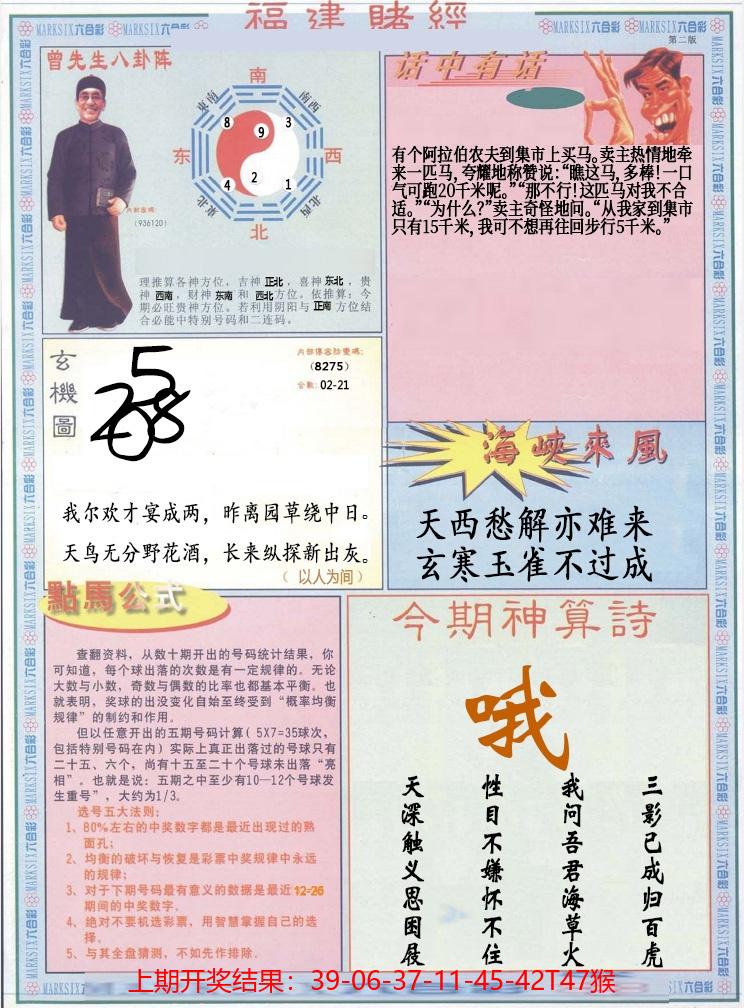 福建賭經
MARKSIX六合彩
第二版
曾先生八卦阵
南
东南
南西
8
9
3
东
西
4
2
1
东北
北西
北
内部密碼:
(936120)
理推算各神方位，吉神正北，喜神东北，贵
神西南，财神东南和西北方位。依推算：今
期必旺贵神方位。若利用阴阳与正南方位结
合必能中特别号码和二连码。
话中有话
有个阿拉伯农夫到集市上买马。卖主热情地牵
来一匹马,夸耀地称赞说:“瞧这马,多棒!一口
气可跑20千米呢。”“那不行!这匹马对我不合
适。”“为什么?”卖主奇怪地问。“从我家到集市
只有15千米,我可不想再往回步行5千米。”
玄機圖
5
268
(8275)
合數:02-21
我尔欢才宴成两，昨离园草绕中日。
天鸟无分野花酒，长来纵探新出灰。
（ 以人为间 ）
海峽來風
天西愁解亦难来
玄寒玉雀不过成
點馬公式
查翻资料，从数十期开出的号码统计结果，你
可知道，每个球出落的次数是有一定规律的。无论
大数与小数，奇数与偶数的比率也都基本平衡。也
就表明，奖球的出没变化自始至终受到“概率均衡
规律”的制约和作用。
但以任意开出的五期号码计算( 5X7=35球次，
包括特别号码在内)实际上真正出落过的号球只有
二十五、六个，尚有十五至二十个号球未出落“亮
相”。也就是说：五期之中至少有10—12个号球发
生重号”，大约为1/3。
选号五大法则：
1、80%左右的中奖数字都是最近出现过的熟
面孔；
2、均衡的破坏与恢复是彩票中奖规律中永远
的规律；
3、对于下期号码最有意义的数据是最近12-26
期间的中奖数字。
4、绝对不要机选彩票，用智慧掌握自己的选
择。
5、与其全盘猜测，不如先作排除．
今期神算詩
哦
三影已成归百虎
我问吾君海草火
性目不嫌怀不住
天深触义思困屐
上期开奖结果：39-06-37-11-45-42T47猴